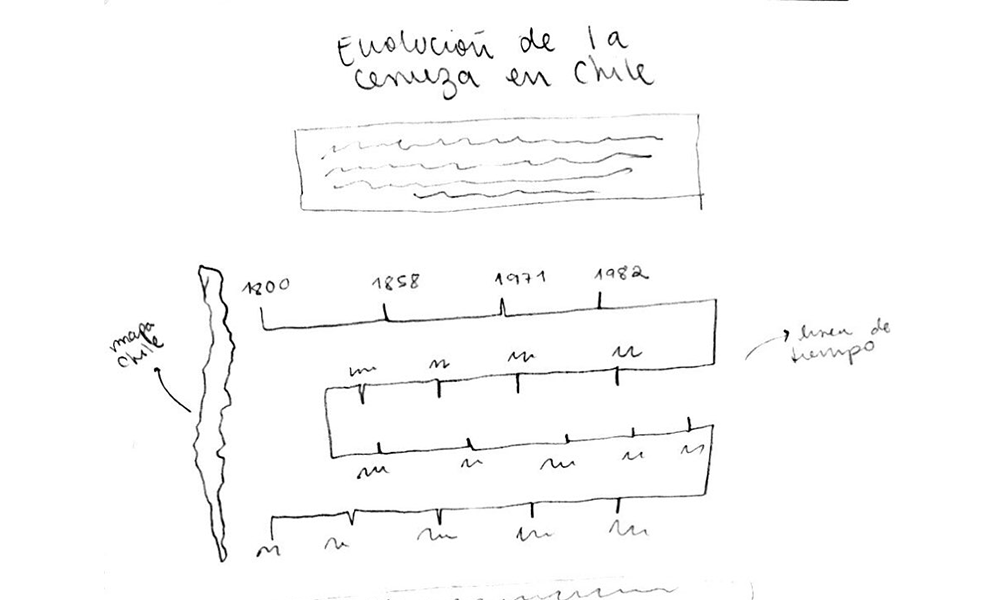 Evolución de la
cerveza en Chile
1800 1858 1971 1982
mapa
Chile
linea de
tiempo